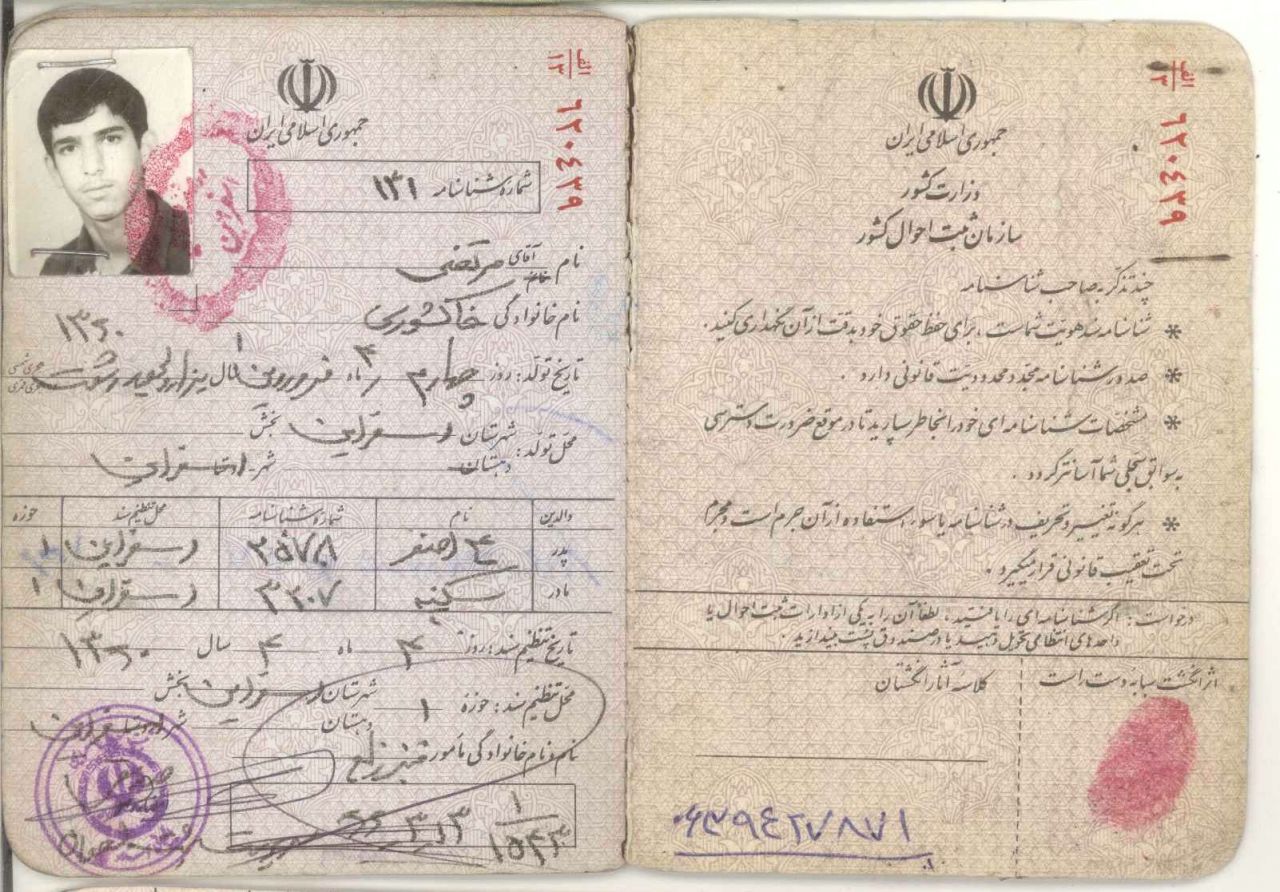 الف
۱۳
۶۲۰۴۳۹
جمهوری اسلامی ایران
شماره شناسنامه ۱۳۱
اسفراین
نام آقای خانم مرتضی
نام خانوادگی خاکشوری
۱۳۶۰
تاریخ تولد: روز چهارم ۴ / ماه فروردین ۱ سال یکهزار و سیصد و شصت
محل تولد: شهرستان اسفراین بخش
دهستان شهر اسفراین
والدین نام شماره شناسنامه محل تنظیم سند حوزه
پدر اصغر ۳۵۷۸ اسفراین ۱
مادر سکینه ۳۳۰۷ اسفراین ۱
تاریخ تنظیم سند: روز ۴ ماه ۴ سال ۱۳۶۰
محل تنظیم سند: حوزه ۱ شهرستان اسفراین بخش
دهستان
نام و نام خانوادگی مأمور
الف
۳
۶۲۰۴۳۹
جمهوری اسلامی ایران
وزارت کشور
سازمان ثبت احوال کشور
چند تذکر به صاحب شناسنامه
* شناسنامه سند هویت شماست، برای حفظ حقوق خود بدقت از آن نگهداری کنید.
* صدور شناسنامه مجدد محدودیت قانونی دارد.
* مشخصات شناسنامه ای خود را بخاطر بسپارید تا در موقع ضرورت دسترسی
به سوابق سجلی شما آسانتر گردد.
* هرگونه تغییر و تحریف در شناسنامه یا سوء استفاده از آن جرم است و مجرم
تحت تعقیب قانونی قرار میگیرد.
درخواست: اگر شناسنامه ای را یافتید، لطفاً آن را به یکی از ادارات ثبت احوال یا
واحدهای انتظامی تحویل دهید یا در صندوق پست بیندازید.
اثر انگشت سبابه دست راست
کلاسه آثار انگشتان
۰۶۳۹۴۲۷۸۷۱